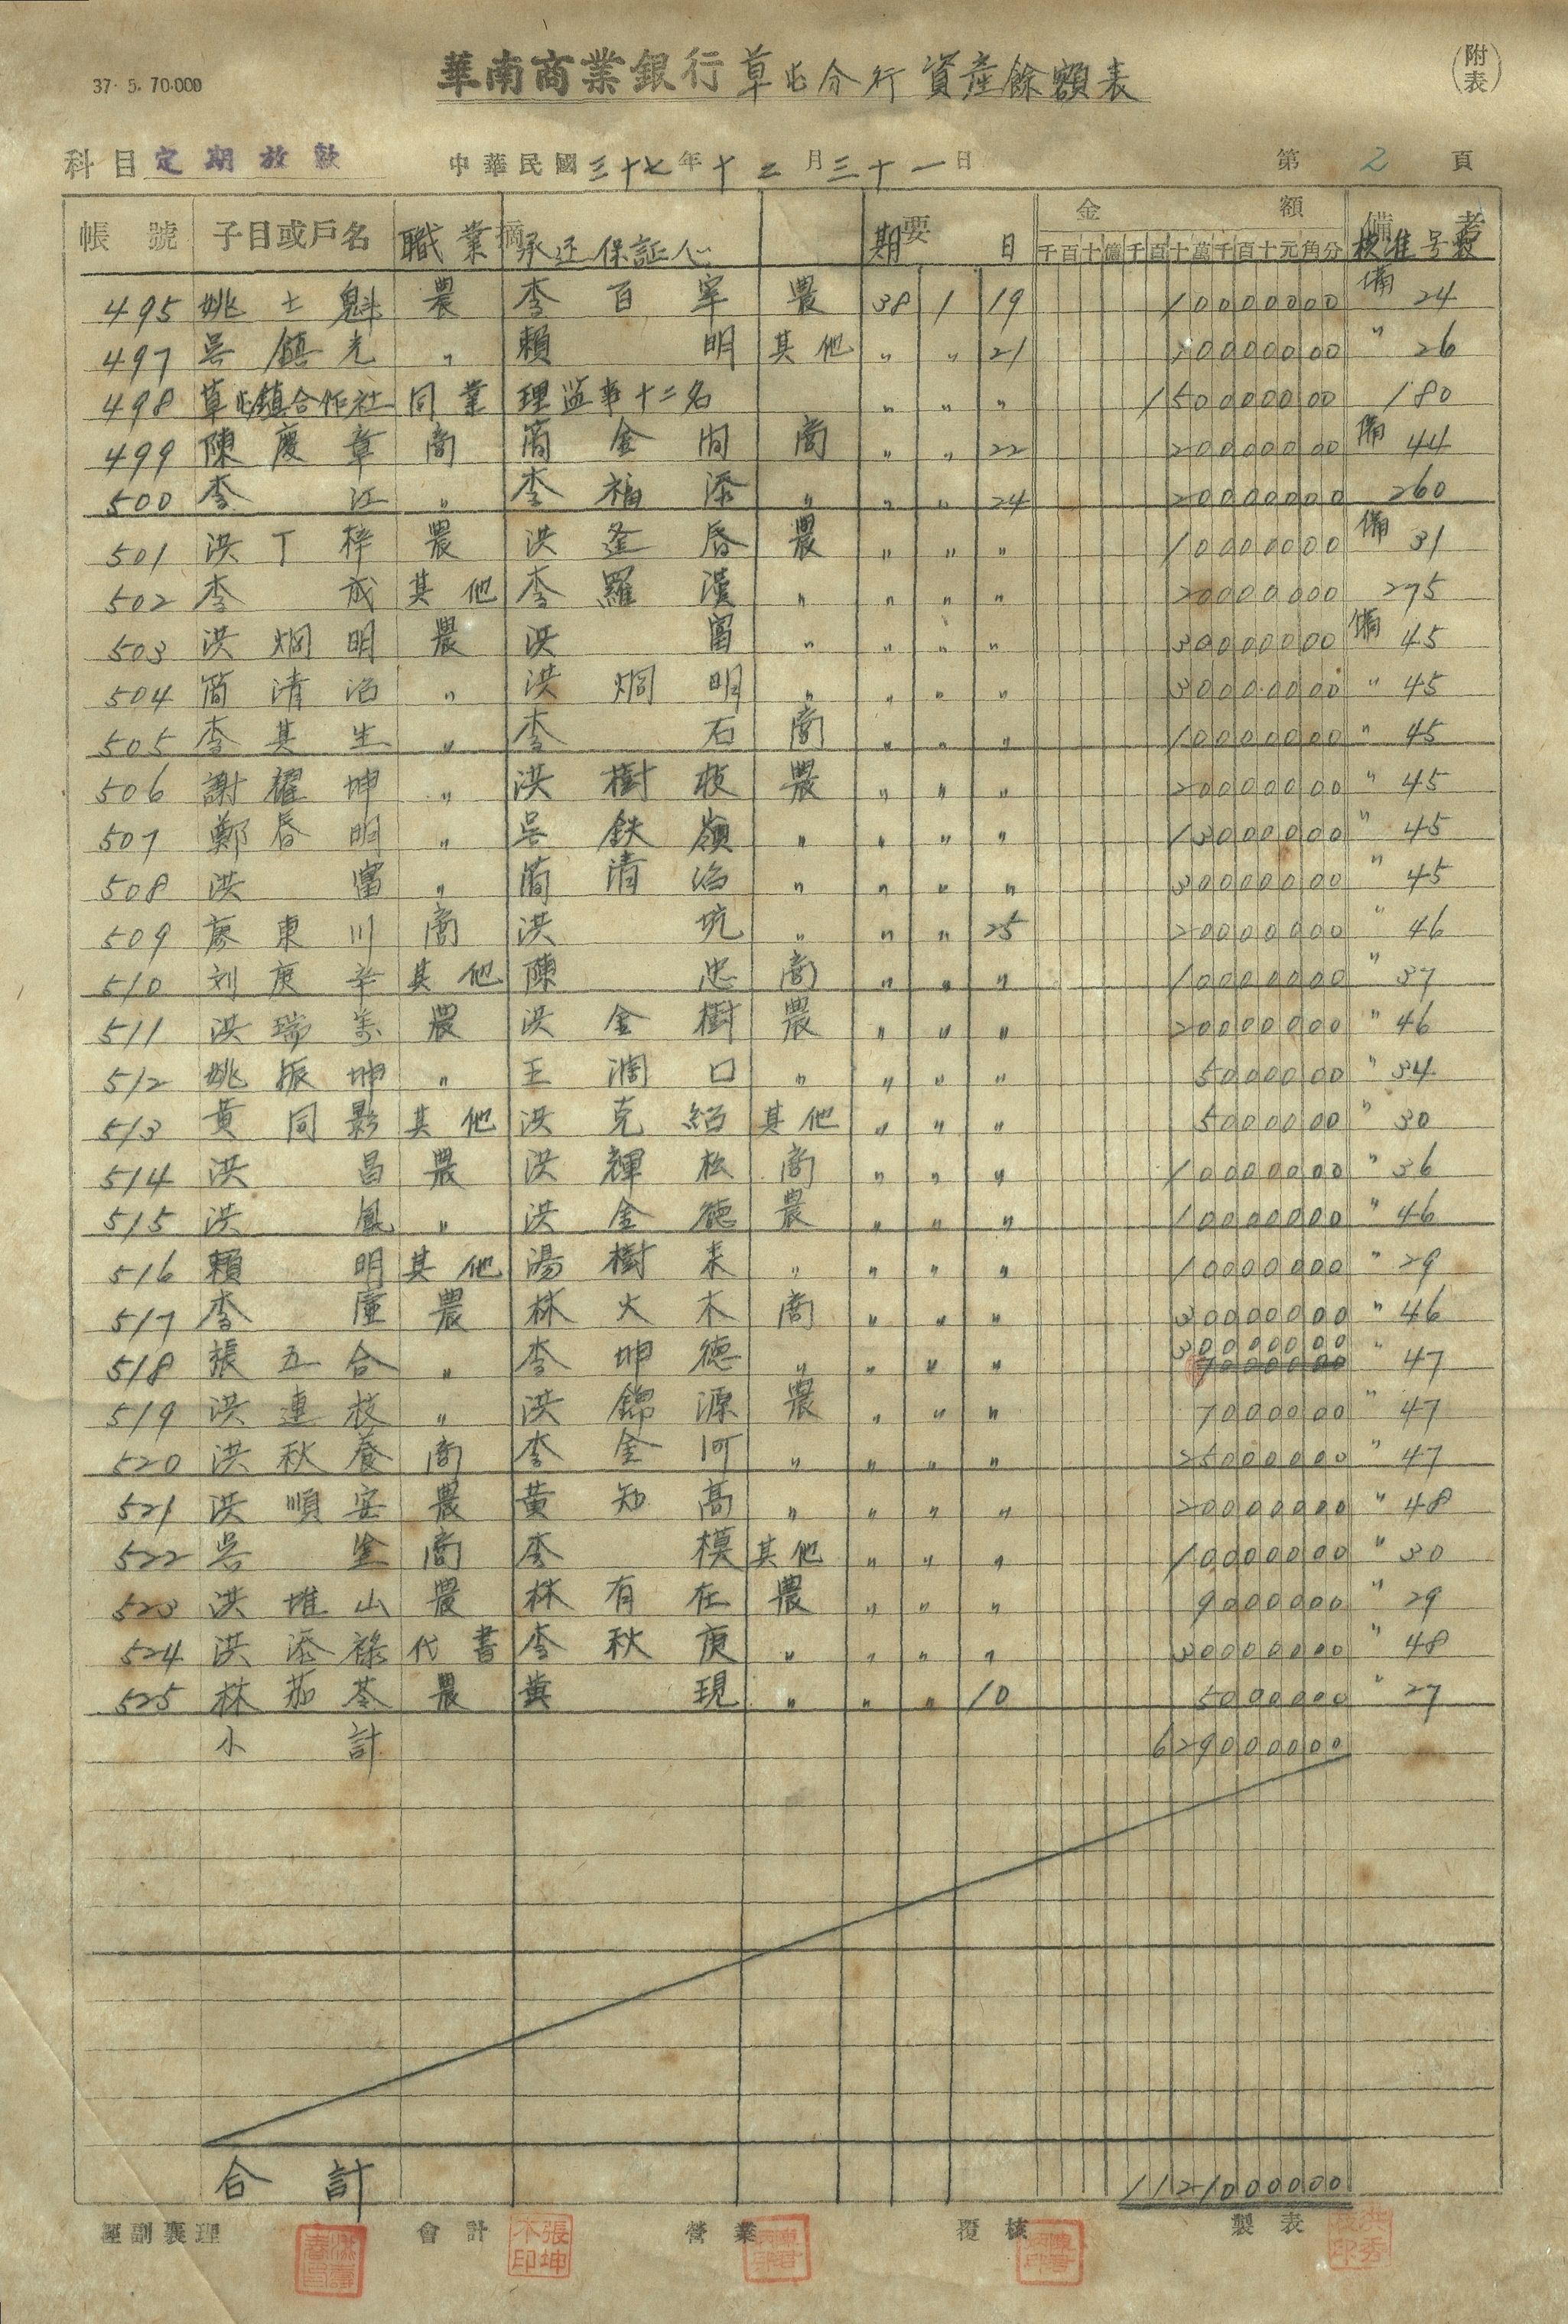 37. 5. 70.000
華南商業銀行草屯分行資產餘額表
(附表)
科目 定期放款 中華民國三十七年十二月三十一日 第 2 頁
帳號 子目或戶名 職業 摘要 承还保証人 期日 金額 備考 核准号数
千百十億千百十萬千百十元角分
495 姚士魁 農 李百寧 農 38 1 19 10000000 備 24
497 吳鎮光 〃 賴明 其他 〃 〃 21 10000000 〃 26
498 草屯鎮合作社 同業 理監事十二名 〃 〃 〃 150000000 180
499 陳慶章 商 簡金闾 商 〃 〃 22 20000000 備 44
500 李江 〃 李福添 〃 〃 〃 24 20000000 260
501 洪丁梓 農 洪逢唇 農 〃 〃 〃 10000000 備 31
502 李成 其他 李羅漢 〃 〃 〃 〃 20000000 275
503 洪烱明 農 洪富 〃 〃 〃 〃 30000000 備 45
504 簡清治 〃 洪烱明 〃 〃 〃 〃 30000000 〃 45
505 李其生 〃 李石 商 〃 〃 〃 10000000 〃 45
506 謝耀坤 〃 洪樹枝 農 〃 〃 〃 20000000 〃 45
507 鄭春明 〃 吳鉄嶺 〃 〃 〃 〃 13000000 〃 45
508 洪富 〃 簡清治 〃 〃 〃 〃 30000000 〃 45
509 廖東川 商 洪坑 〃 〃 〃 25 20000000 〃 46
510 刘庚辛 其他 陳忠 商 〃 〃 〃 10000000 〃 37
511 洪瑞崇 農 洪金樹 農 〃 〃 〃 20000000 〃 46
512 姚振坤 〃 王濶口 〃 〃 〃 〃 5000000 〃 34
513 黃同影 其他 洪克紹 其他 〃 〃 〃 5000000 〃 30
514 洪昌 農 洪輝松 商 〃 〃 〃 10000000 〃 36
515 洪鳳 〃 洪金德 農 〃 〃 〃 10000000 〃 46
516 賴明 其他 湯樹來 〃 〃 〃 〃 10000000 〃 29
517 李廑 農 林火木 商 〃 〃 〃 30000000 〃 46
518 張五合 〃 李坤德 〃 〃 〃 〃 30000000 7000000 〃 47
519 洪連枝 〃 洪錦源 農 〃 〃 〃 7000000 〃 47
520 洪秋養 商 李金河 〃 〃 〃 〃 25000000 〃 47
521 洪順安 農 黃知高 〃 〃 〃 〃 20000000 〃 48
522 吳金 商 李模 其他 〃 〃 〃 10000000 〃 30
523 洪堆山 農 林有在 農 〃 〃 〃 9000000 〃 29
524 洪添祿 代書 李秋庚 〃 〃 〃 〃 30000000 〃 48
525 林茄苳 農 黃現 〃 〃 〃 10 5000000 〃 27
小計 629000000
合計 1121000000
經副襄理 會計 張坤木印 營業 覆核 製表